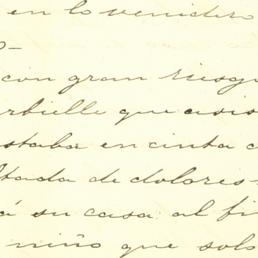 en lo venidero
o-
con gran riesgo
que asis
staba en cinta
ltada de dolores
á su casa al fi
niño que solo